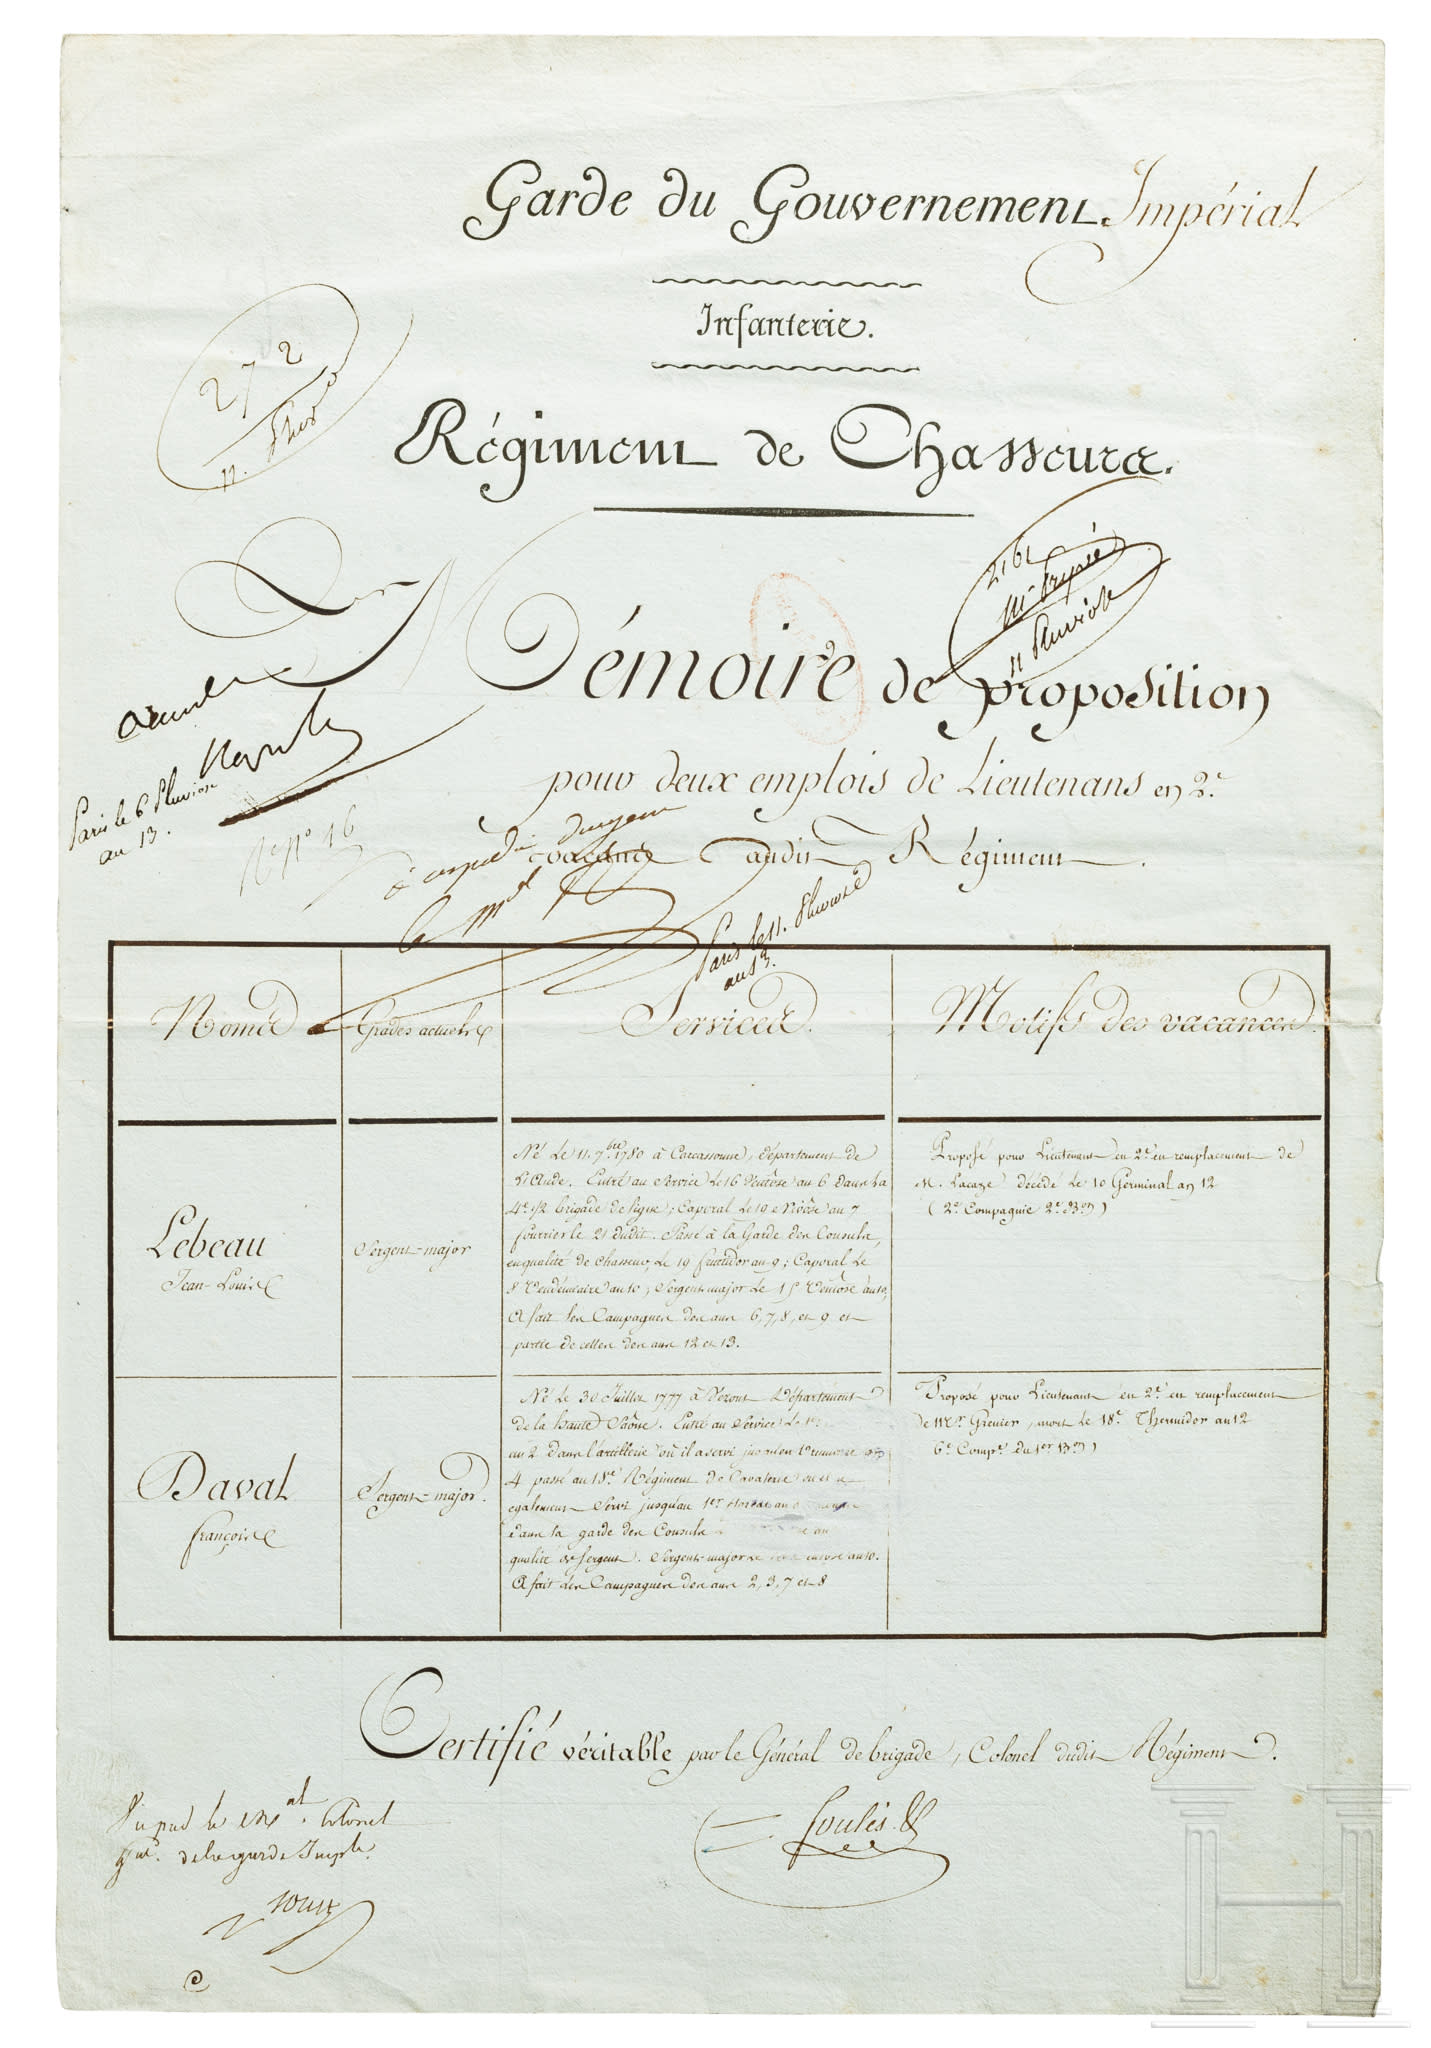 Garde du Gouvernement Impérial
Infanterie.
272
11. Pluv
Régiment de Chasseurs.
2161
11 Pluviose
Mémoire de proposition
pour deux emplois de Lieutenans en 2.e
vacants audit Régiment.
Paris le 6 Pluviose
an 13.
N.º 16
à expédier d'urgence
le M.al
Paris le 11. Pluviose
an 13.
Noms
Grades actuels
Services.
Motifs des vacances.
Lebeau
Jean-Louis
Sergent-major
Né le 11. 7.bre 1780 à Carcassonne, département de
l'Aude. Entré au service le 16 Ventôse an 6 dans la
4.e 1/2 brigade de ligne; Caporal le 19 Nivôse an 7
fourrier le 21 dudit. Passé à la Garde des Consuls,
en qualité de chasseur, le 19 fructidor an 9; Caporal le
8 Vendémiaire an 10, Sergent major le 15 Ventôse an 10,
A fait les Campagnes des ans 6, 7, 8, et 9 et
partie de celles des ans 12 et 13.
Proposé pour Lieutenant en 2.e en remplacement de
M. Lacaze décédé le 10 Germinal an 12
(2.e Compagnie 2.e B.on)
Daval
françois
Sergent-major.
Né le 30 Juillet 1777 à Département
de la haute Saône. Entré au Service le 1er
an 2 dans l'artillerie où il a servi jusqu'en Brumaire an
4 passé au 18.e Régiment de Cavalerie où il a
également Servi jusqu'au 1.er
dans la garde des Consuls en
qualité de Sergent. Sergent-major le an 10.
A fait les Campagnes des ans 2, 3, 7 et 8
Proposé pour Lieutenant en 2.e en remplacement
de M.r Grenier, mort le 18.e Thermidor an 12
6.e Comp.e du 1.er B.on)
Certifié véritable par le Général de brigade, Colonel dudit Régiment.
Vu par le M.al Colonel
G.al de la garde Imp.le
Soulés